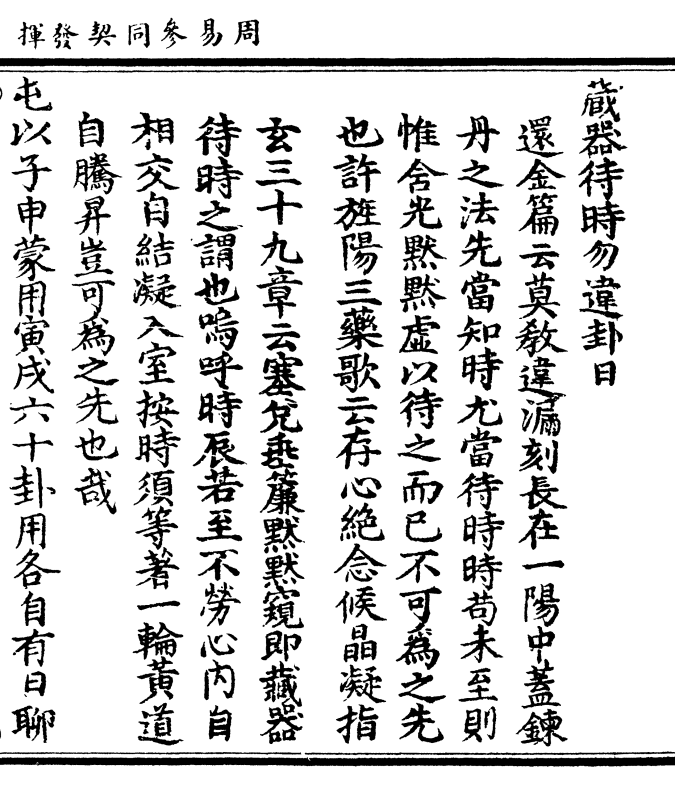 周易參同契發揮
藏器待時勿違卦日
還金篇云莫教違漏刻長在一陽中蓋鍊
丹之法先當知時尤當待時時苟未至則
惟含光默默虛以待之而已不可為之先
也許旌陽三藥歌云存心絶念候晶凝指
玄三十九章云塞兌垂簾默默窺即藏器
待時之謂也嗚呼時辰若至不勞心内自
相交自結凝入室按時須等著一輪黃道
自騰昇豈可為之先也哉
屯以子申蒙用寅戌六十卦用各自有日聊